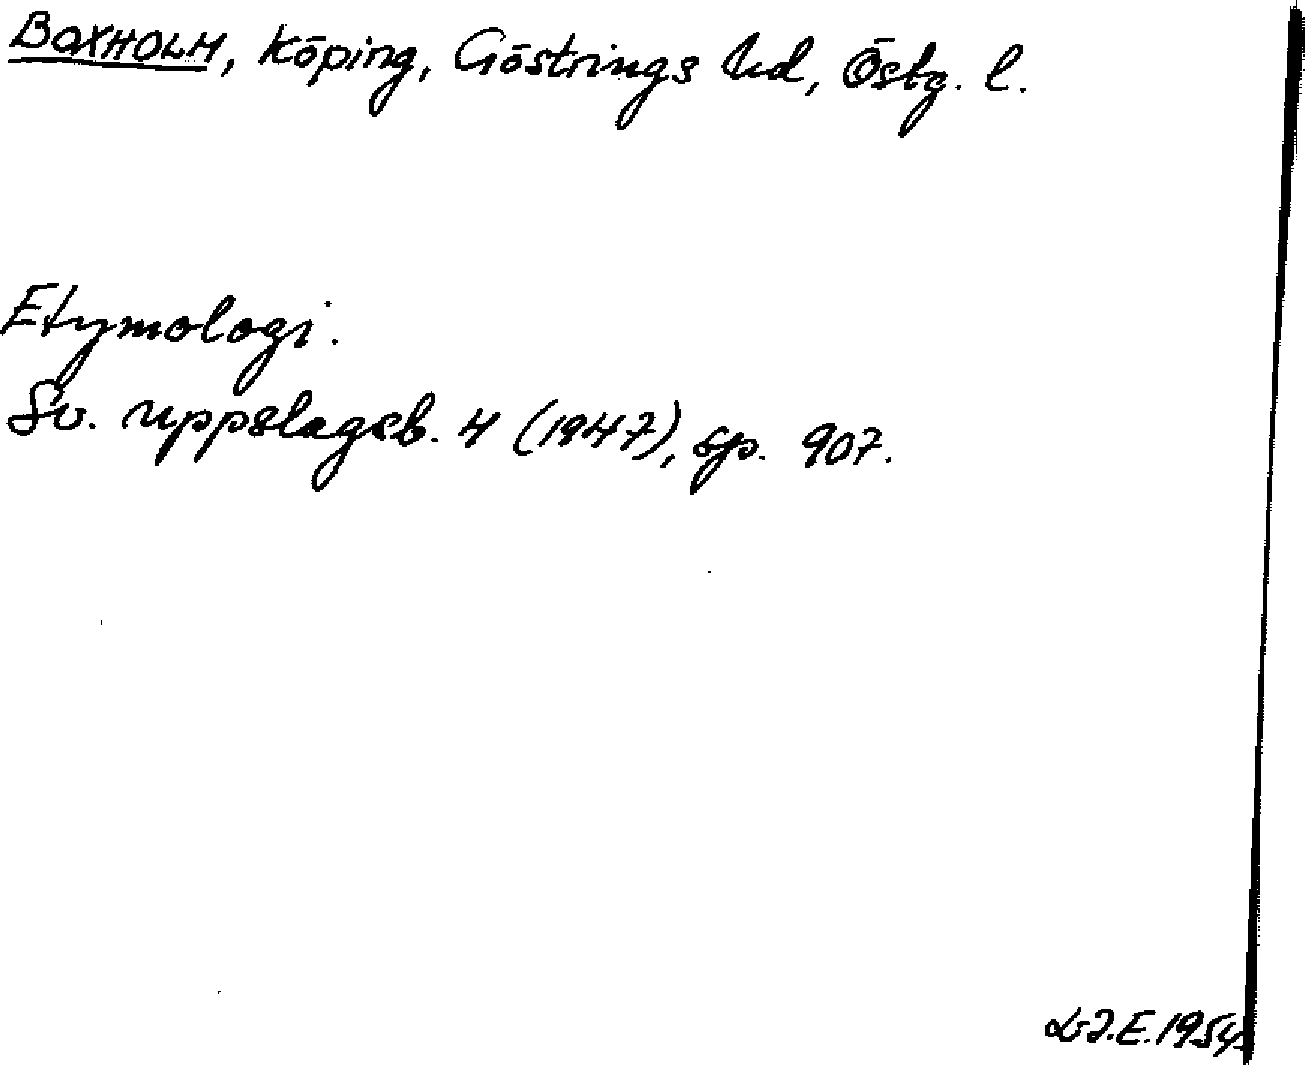 BOXHOLM, köping, Göstrings hd, Östg. l.
Etymologi.
Sv. uppslagsb. 4 (1947), sp. 907.
L-J.E. 1954